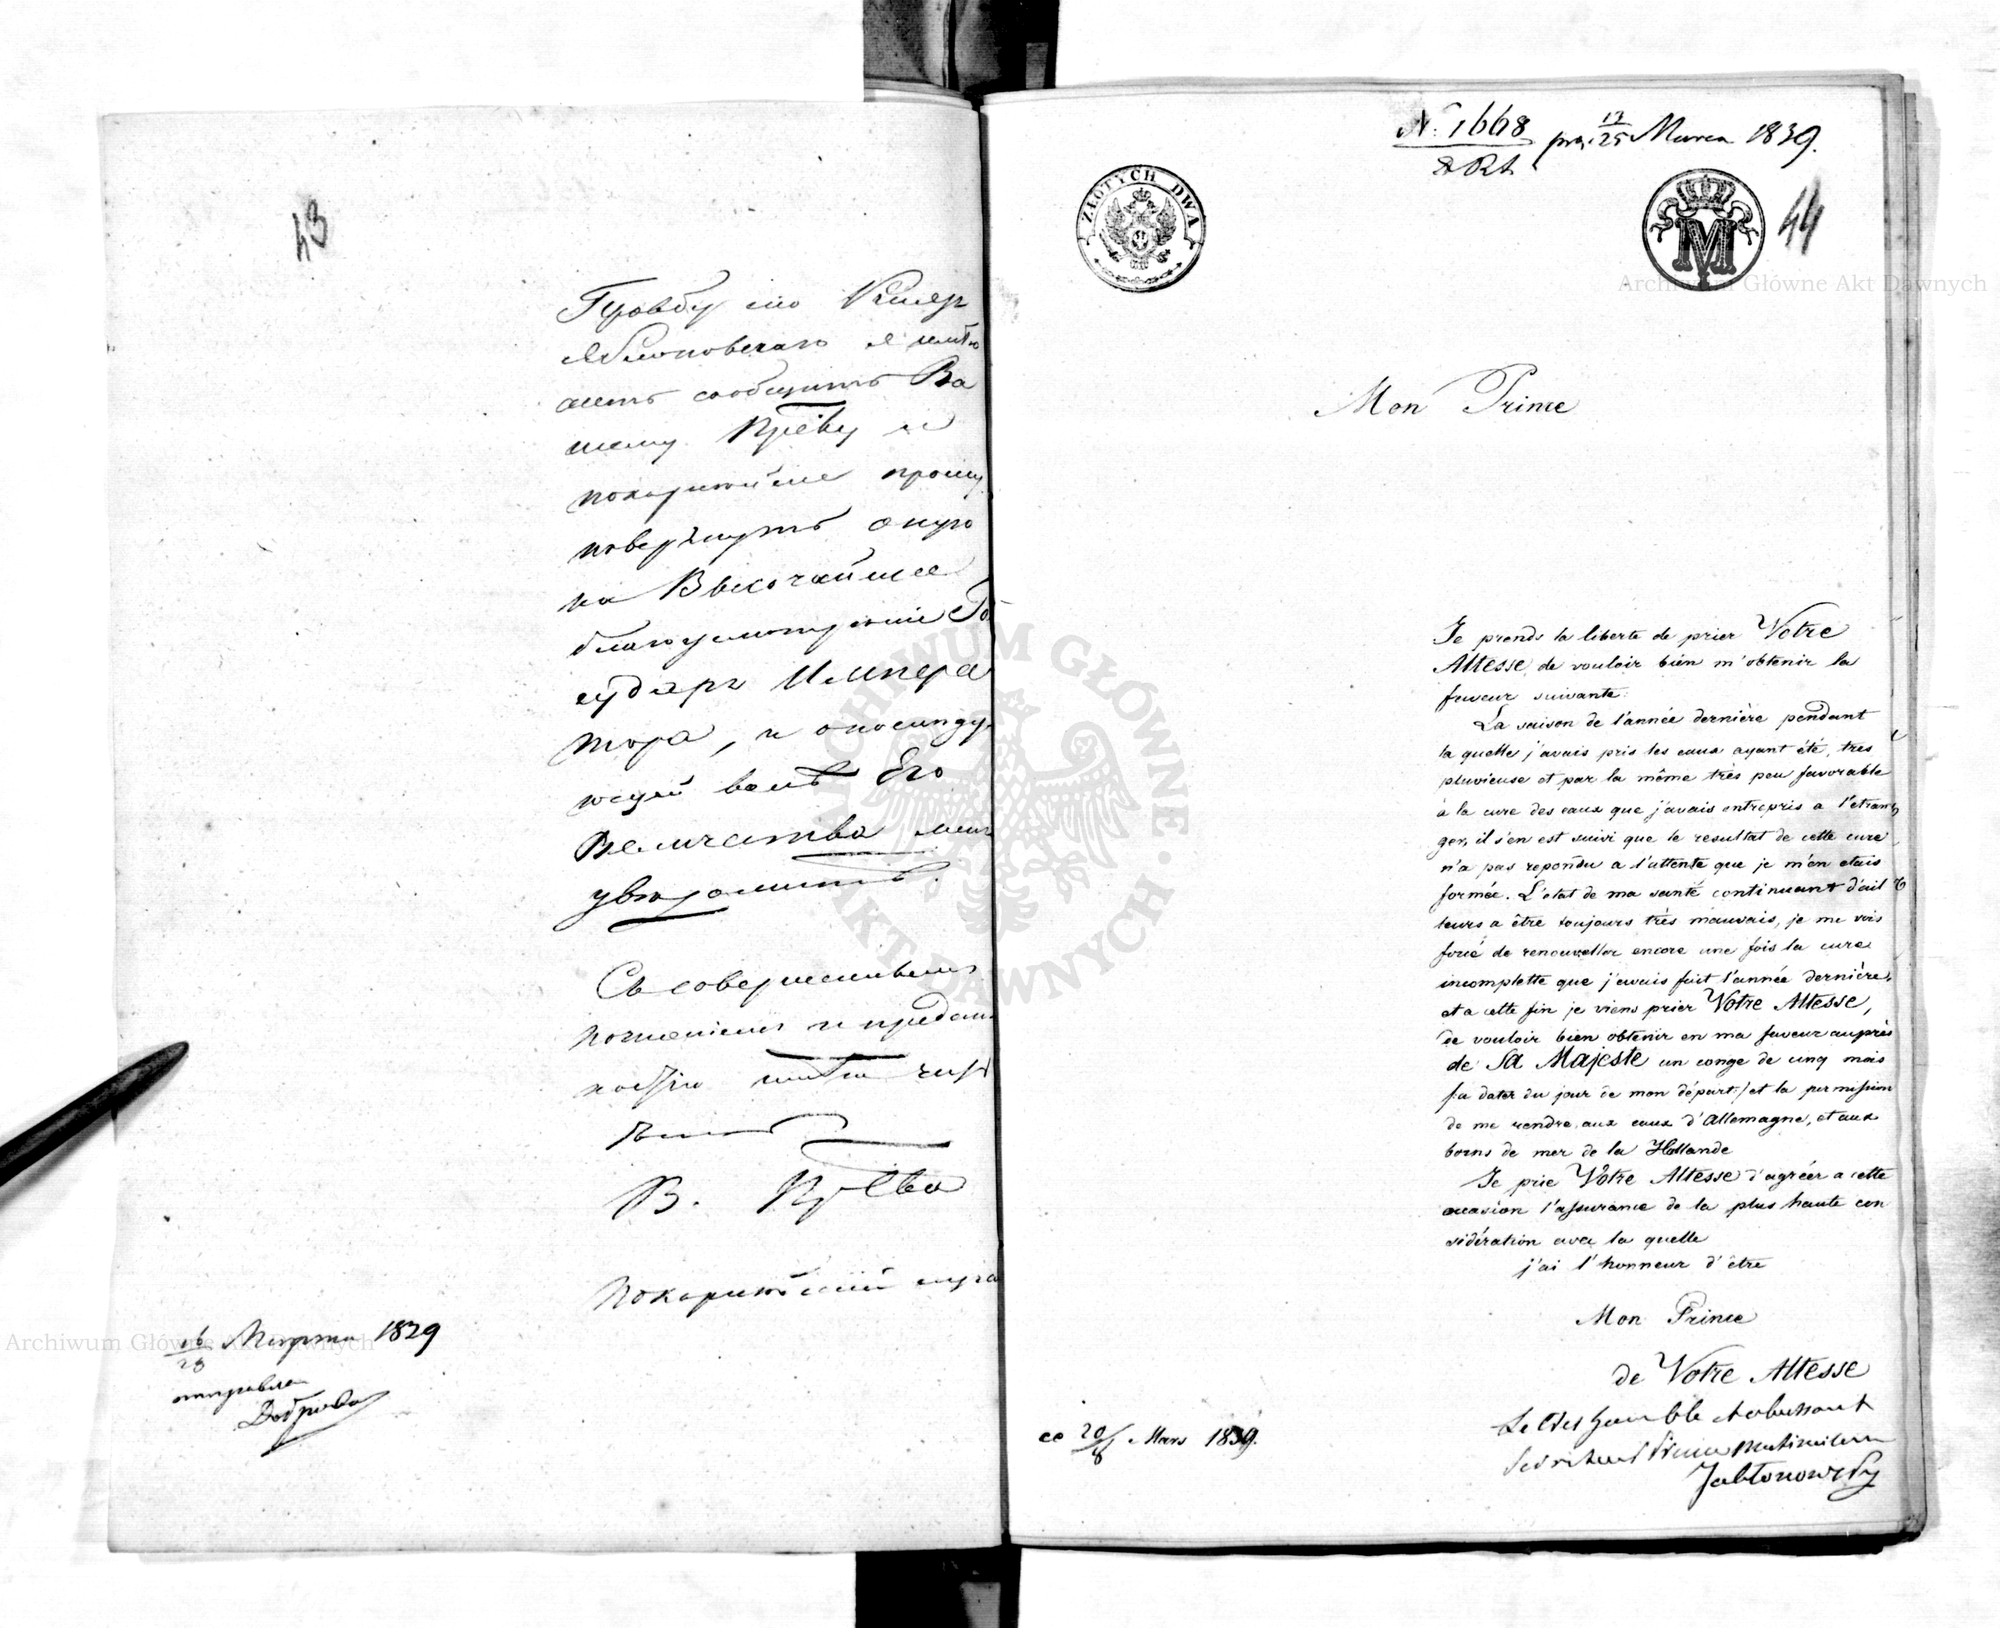 43
Прозьбу сію Князя
Яблоновскаго я имѣю
честь сообщить Ва
шему Пр-ству и
покорнѣйше прошу
повергнуть оную
на Высочайшее
благоусмотреніе Го
сударя Импера
тора, и о послѣду
ющей волѣ Его
Величества меня
увѣдомить.
Съ совершеннымъ
почтеніемъ и предан
ностію имѣю честь
быть
В. Пр-ства
Покорнѣйшій слуга
16/28 Марта 1839
отправлен
N. 1668 prz. 13/25 Marca 1839.
ZŁOTYCH DWA
44
Mon Prince
Je prends la liberte de prier Votre
Altesse de vouloir bien m'obtenir la
faveur suivante:
La saison de l'année dernière pendant
la quelle j'avais pris les eaux ayant été, très
pluvieuse et par la même très peu favorable
à la cure des eaux que j'avais entrepris a l'etran
ger, il s'en est suivi que le resultat de cette cure
n'a pas repondu a l'attente que je m'en etais
formée. L'etat de ma santé continuant d'ail
leurs a être toujours très mauvais, je me vois
forcé de renouveller encore une fois la cure
incomplette que j'avais fait l'année dernière,
et a cette fin je viens prier Votre Altesse,
de vouloir bien obtenir en ma faveur auprès
de Sa Majeste un conge de cinq mois
/a dater du jour de mon départ/ et la permission
de me rendre aux eaux d'Allemagne, et aux
bains de mer de la Hollande
Je prie Votre Altesse d'agréer a cette
occasion l'assurance de la plus haute con
sidération avec la quelle
j'ai l'honneur d'être
Mon Prince
de Votre Altesse
Le très humble et obeissant
Serviteur Prince Maximilien
Jabłonowsky
ce 20/8 Mars 1839.
ARCHIWUM GŁÓWNE AKT DAWNYCH
Archiwum Główne Akt Dawnych
Archiwum Główne Akt Dawnych